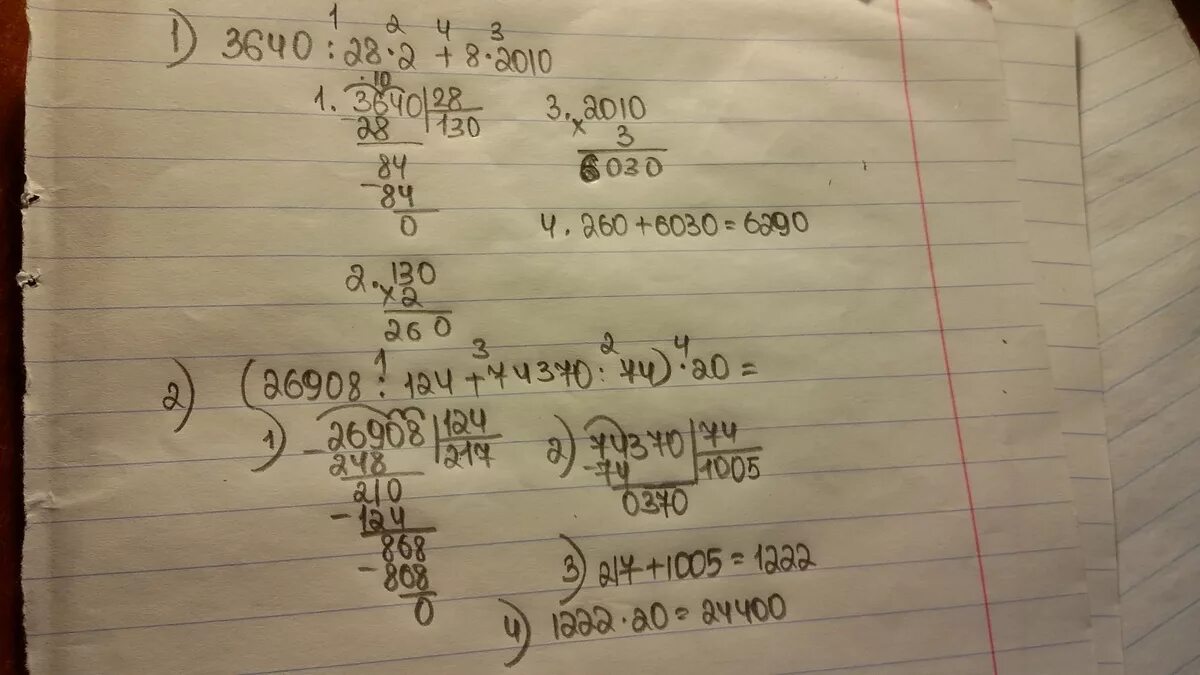 1 2 4 3
1) 3640 : 28 · 2 + 8 · 2010
· 10
1. 3640 | 28
- 28 | 130
84
- 84
0
2. 130
× 2
260
3. 2010
× 3
6030
4. 260 + 6030 = 6290
1 3 2 4
2) (26908 : 124 + 74370 : 74) · 20 =
1) 26908 | 124
- 248 | 217
210
- 124
868
- 868
0
2) 74370 | 74
- 74 | 1005
0370
3) 217 + 1005 = 1222
4) 1222 · 20 = 24400